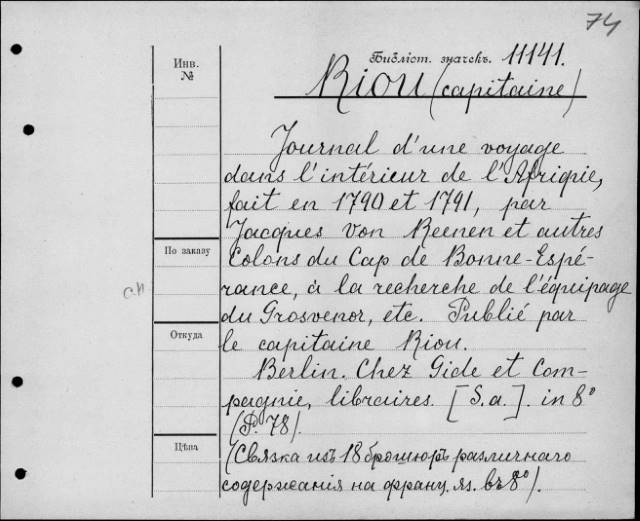 74
Инв.
№
Библіот. значекъ. 11141.
Riou (capitaine)
Journal d'une voyage
dans l'intérieur de l'Afriqие,
fait en 1790 et 1791, par
Jacques Von Reenen et autres
Colons du Cap de Bonne-Espé-
rance, à la recherche de l'équipage
du Grosvenor, etc. Publié par
le capitaine Riou.
Berlin. Chez Gide et Com-
pagnie, libraires. [S.a.]. in 8°
(P. 78).
(Связка изъ 18 брошюръ различнаго
содержанія на франц. яз. въ 8°).
По заказу
Откуда
Цѣна